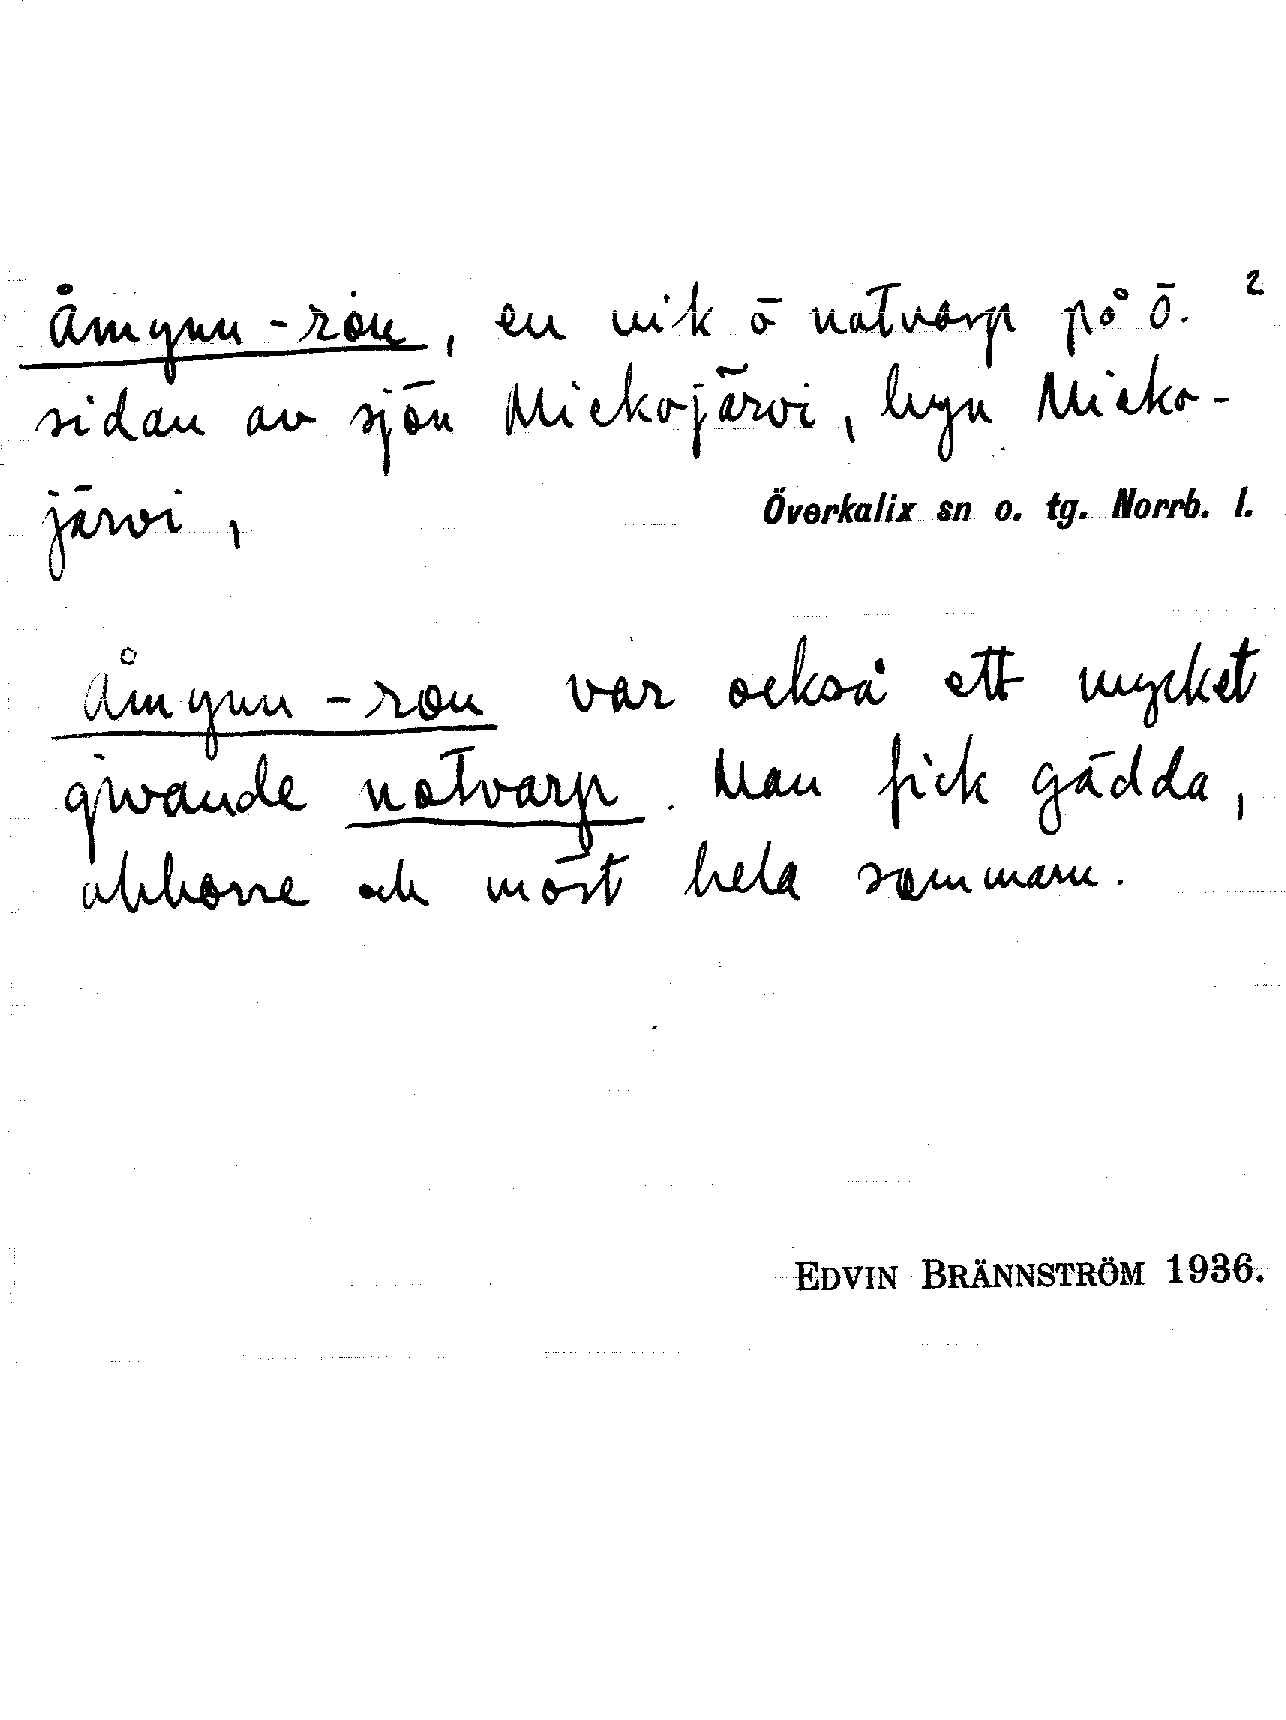 Åmynn-ron, en vik ō notvarp på ö. 2
sidan av sjön Mickojärvi, byn Micko-
järvi,
Överkalix sn o. tg. Norrb. l.
Åmynn-ron var också ett mycket
givande notvarp. Man fick gädda,
abborre och mört hela sommarn.
EDVIN BRÄNNSTRÖM 1936.